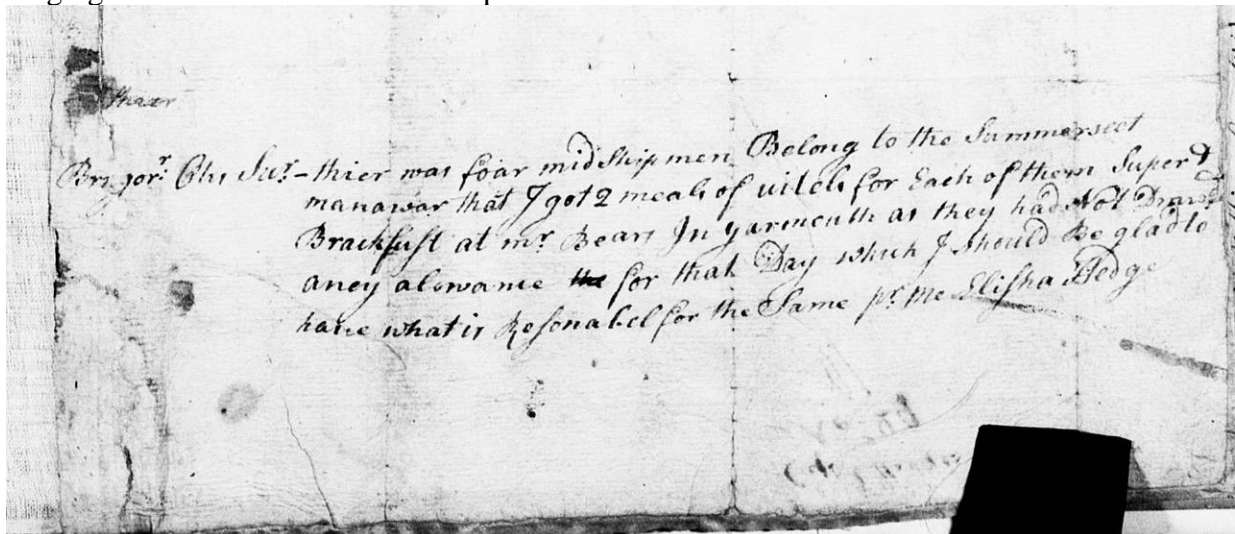 thier
Brigor.r Otis Sir.r – thier was foar midshipmen Belong to the Summerseet
manawar that I got 2 meals of vitels for Each of them Super &
Brackfust at mr. Bears In yarmouth as they had Not Drawd
aney alowance for that Day which I should Be glad to
have what is Resonabel for the Same pr. me Elisha Hedge